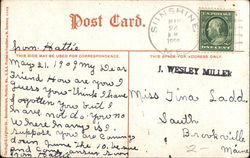 Post Card.
SUNSHINE
from Hattie
THIS SIDE MAY BE USED FOR CORRESPONDENCE.
May 21, 190 My Dear
Friend How are you I
guess you think I have
forgotten you but I
have not do you no
Where Mary is I
suppose you are Coming
down June the 10. be sure
and Come answer soon
from Hattie
THIS SPACE FOR ADDRESS ONLY.
J. WESLEY MILLER
Miss Tina Ladd
South
Brooksville
Maine